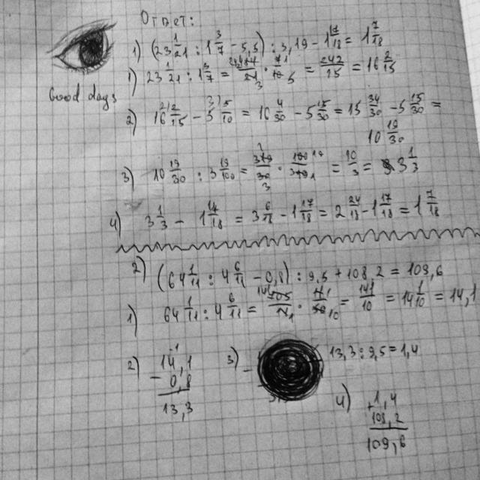 Ответ:
1) (23 1/21 : 1 3/7 − 5,5) : 3,19 − 1 17/18 = 1 7/18
1) 23 1/21 : 1 3/7 = 484/21 · 7/10 = 242/15 = 16 2/15
Good days
2) 16 2/15 − 5 5/10 = 16 4/30 − 5 15/30 = 15 34/30 − 5 15/30 =
10 19/30
3) 10 19/30 : 3 19/100 = 319/30 · 100/319 = 10/3 = 3 1/3
4) 3 1/3 − 1 17/18 = 3 6/18 − 1 17/18 = 2 24/18 − 1 17/18 = 1 7/18
2) (64 1/11 : 4 6/11 − 0,8) : 9,5 + 108,2 = 109,6
1) 64 1/11 : 4 6/11 = 705/11 · 11/50 = 141/10 = 14 1/10 = 14,1
2) 14,1
− 0,8
13,3
3) − 13,3 : 9,5 = 1,4
4) 1,4
+ 108,2
109,6